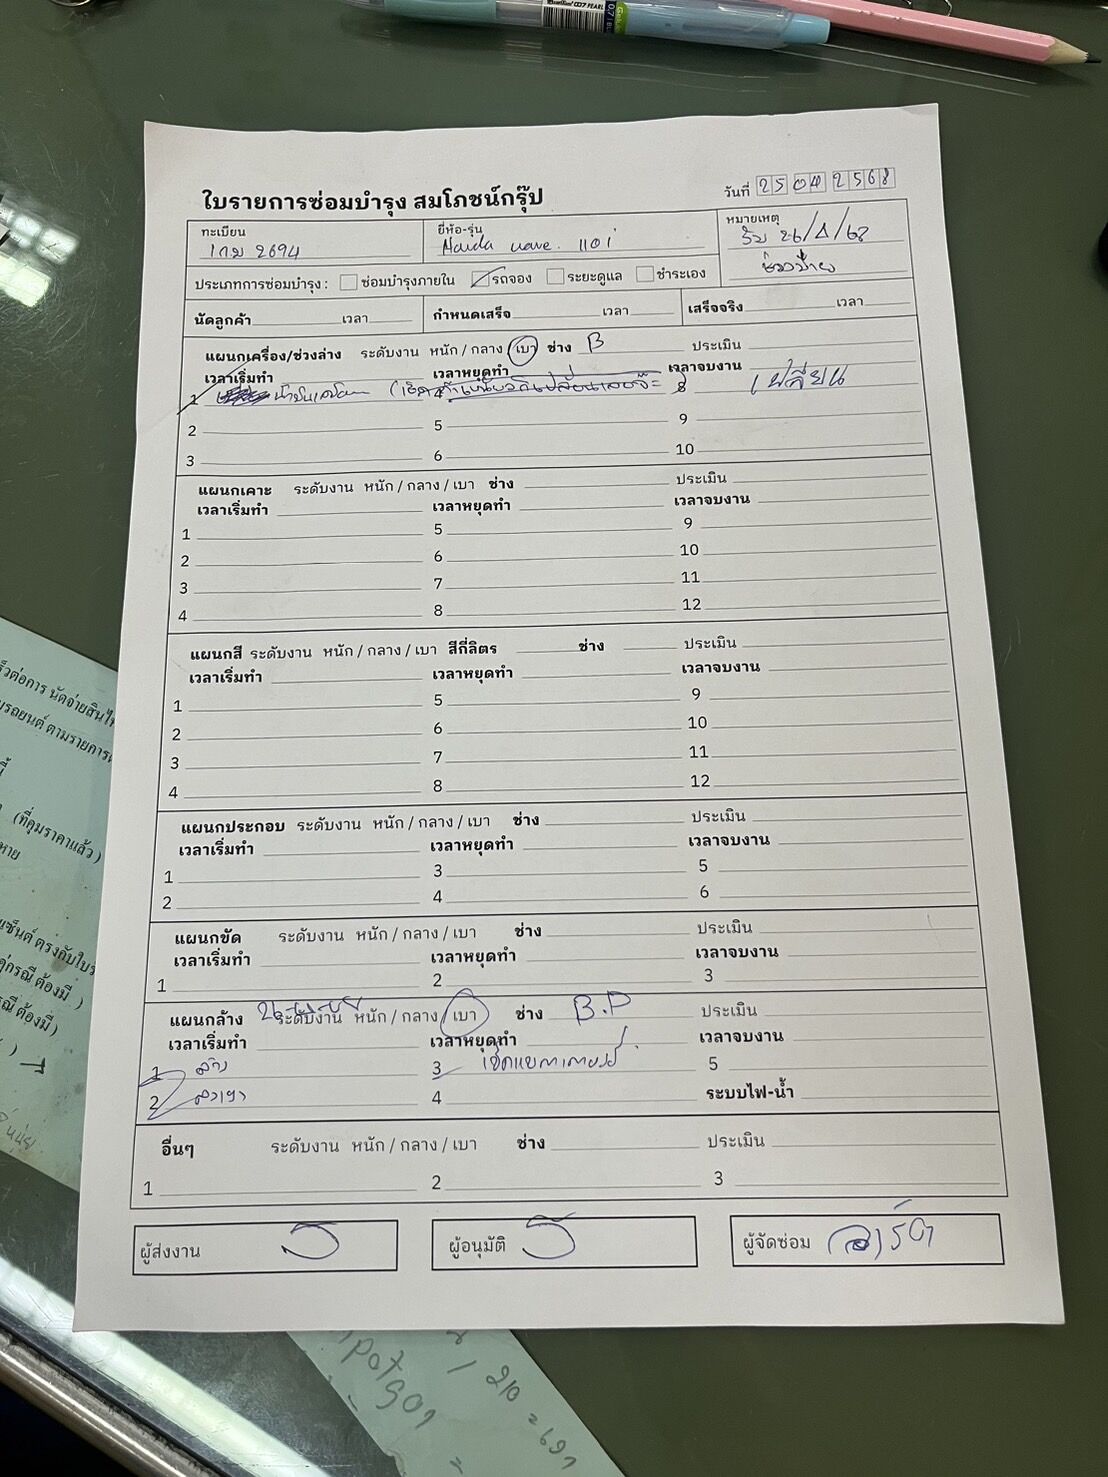 ใบรายการซ่อมบำรุง สมโภชน์กรุ๊ป
วันที่ 25 04 2568
ทะเบียน
1กม 2694
ยี่ห้อ-รุ่น
Honda wave. 110i
หมายเหตุ
รับ 26/4/68
ช่วงบ่าย
ประเภทการซ่อมบำรุง : ซ่อมบำรุงภายใน รถจอง ระยะดูแล ชำระเอง
นัดลูกค้า เวลา กำหนดเสร็จ เวลา เสร็จจริง เวลา
แผนกเครื่อง/ช่วงล่าง ระดับงาน หนัก / กลาง / เบา ช่าง B ประเมิน
เวลาเริ่มทำ เวลาหยุดทำ เวลาจบงาน
1 น้ำมันเครื่อง 4 8 เปลี่ยน
2 5 9
3 6 10
แผนกเคาะ ระดับงาน หนัก / กลาง / เบา ช่าง ประเมิน
เวลาเริ่มทำ เวลาหยุดทำ เวลาจบงาน
1 5 9
2 6 10
3 7 11
4 8 12
แผนกสี ระดับงาน หนัก / กลาง / เบา สีกี่ลิตร ช่าง ประเมิน
เวลาเริ่มทำ เวลาหยุดทำ เวลาจบงาน
1 5 9
2 6 10
3 7 11
4 8 12
แผนกประกอบ ระดับงาน หนัก / กลาง / เบา ช่าง ประเมิน
เวลาเริ่มทำ เวลาหยุดทำ เวลาจบงาน
1 3 5
2 4 6
แผนกขัด ระดับงาน หนัก / กลาง / เบา ช่าง ประเมิน
เวลาเริ่มทำ เวลาหยุดทำ เวลาจบงาน
1 2 3
แผนกล้าง ระดับงาน หนัก / กลาง / เบา ช่าง B.P ประเมิน
เวลาเริ่มทำ เวลาหยุดทำ เวลาจบงาน
1 ล้าง 3 5
2 4 ระบบไฟ-น้ำ
อื่นๆ ระดับงาน หนัก / กลาง / เบา ช่าง ประเมิน
1 2 3
ผู้ส่งงาน ผู้อนุมัติ ผู้จัดซ่อม
(ที่คุมราคาแล้ว)